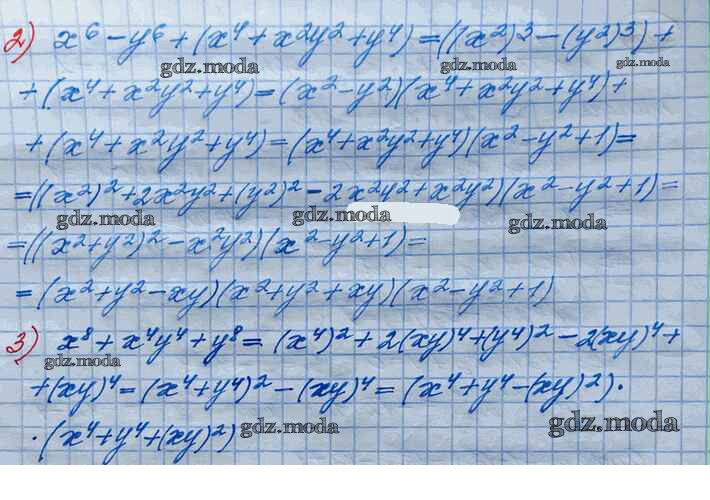 2) x⁶ - y⁶ + (x⁴ + x²y² + y⁴) = ((x²)³ - (y²)³) +
gdz.moda gdz.moda gdz.moda
+ (x⁴ + x²y² + y⁴) = (x² - y²)(x⁴ + x²y² + y⁴) +
+ (x⁴ + x²y² + y⁴) = (x⁴ + x²y² + y⁴)(x² - y² + 1) =
= ((x²)² + 2x²y² + (y²)² - 2x²y² + x²y²)(x² - y² + 1) =
gdz.moda gdz.moda gdz.moda
= ((x² + y²)² - x²y²)(x² - y² + 1) =
= (x² + y² - xy)(x² + y² + xy)(x² - y² + 1)
3) x⁸ + x⁴y⁴ + y⁸ = (x⁴)² + 2(xy)⁴ + (y⁴)² - 2(xy)⁴ +
gdz.moda
+ (xy)⁴ = (x⁴ + y⁴)² - (xy)⁴ = (x⁴ + y⁴ - (xy)²) ·
· (x⁴ + y⁴ + (xy)²)
gdz.moda gdz.moda